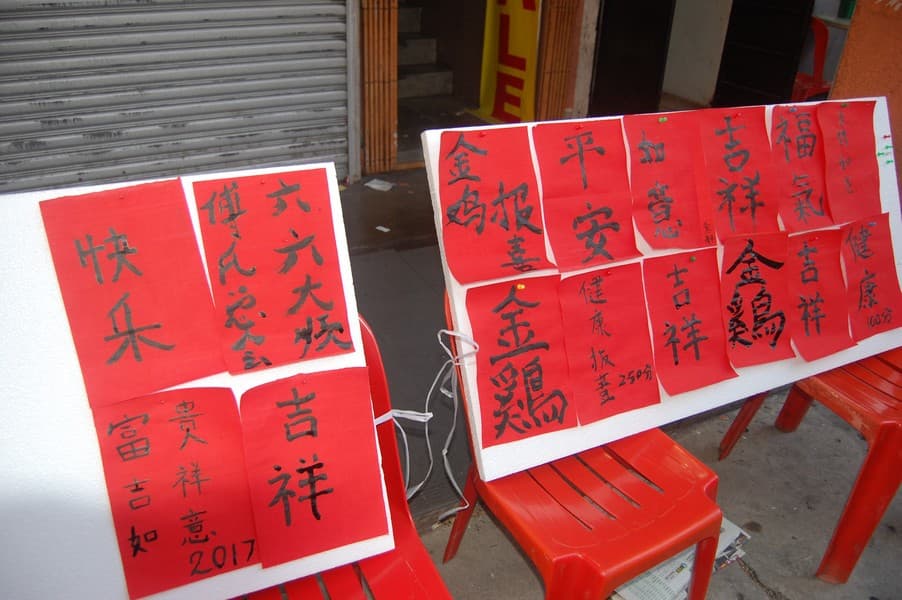 LE
快乐
六六大顺
傅氏总会
富貴
吉祥
如意
2017
吉祥
金鸡
报喜
平安
如意
吉祥
福氣
金鷄
健康
250分
吉祥
金鷄
吉祥
健康
100分